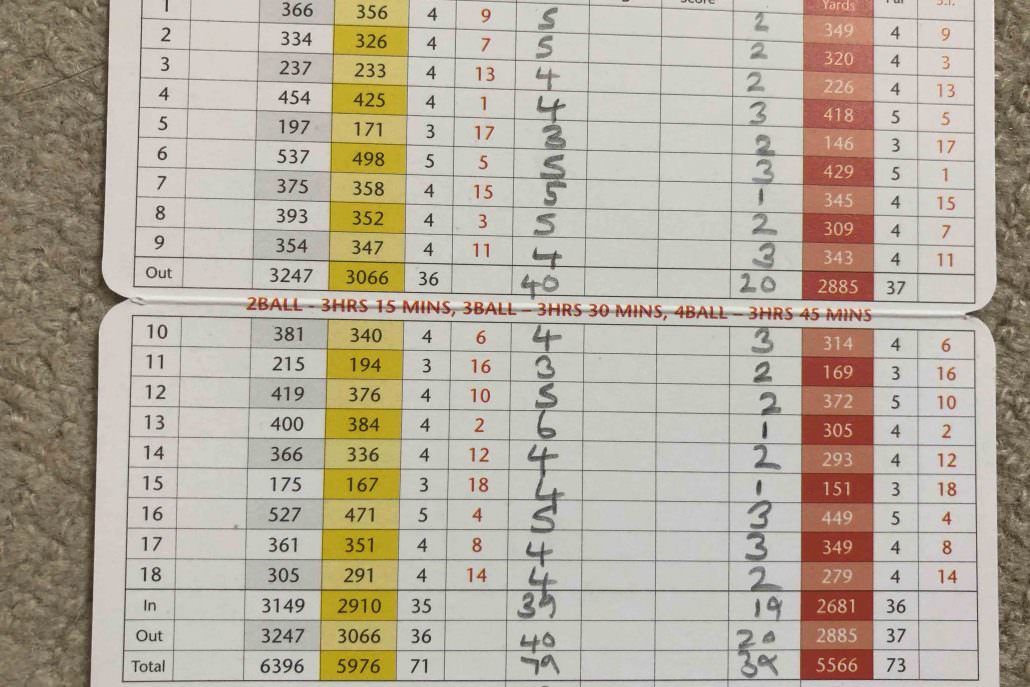 Yards
1 366 356 4 9 5 2 349 4 9
2 334 326 4 7 5 2 320 4 3
3 237 233 4 13 4 2 226 4 13
4 454 425 4 1 4 3 418 5 5
5 197 171 3 17 3 2 146 3 17
6 537 498 5 5 5 3 429 5 1
7 375 358 4 15 5 1 345 4 15
8 393 352 4 3 5 2 309 4 7
9 354 347 4 11 4 3 343 4 11
Out 3247 3066 36 40 20 2885 37
2BALL - 3HRS 15 MINS, 3BALL – 3HRS 30 MINS, 4BALL – 3HRS 45 MINS
10 381 340 4 6 4 3 314 4 6
11 215 194 3 16 3 2 169 3 16
12 419 376 4 10 5 2 372 5 10
13 400 384 4 2 6 1 305 4 2
14 366 336 4 12 4 2 293 4 12
15 175 167 3 18 4 1 151 3 18
16 527 471 5 4 5 3 449 5 4
17 361 351 4 8 4 3 349 4 8
18 305 291 4 14 4 2 279 4 14
In 3149 2910 35 39 19 2681 36
Out 3247 3066 36 40 20 2885 37
Total 6396 5976 71 79 39 5566 73